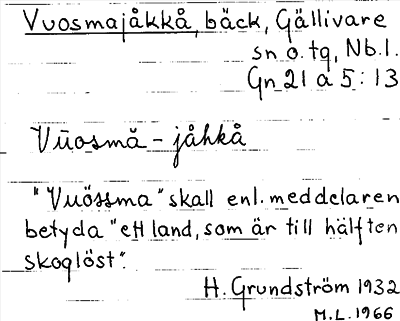 Vuosmajåkkå, bäck, Gällivare
sn o. tg, Nb.l.
Gn 21 a 5 : 13
Vūosmă - jåhkå
"Vuössma" skall enl. meddelaren
betyda "ett land, som är till hälften
skoglöst".
H. Grundström 1932
M.L. 1966